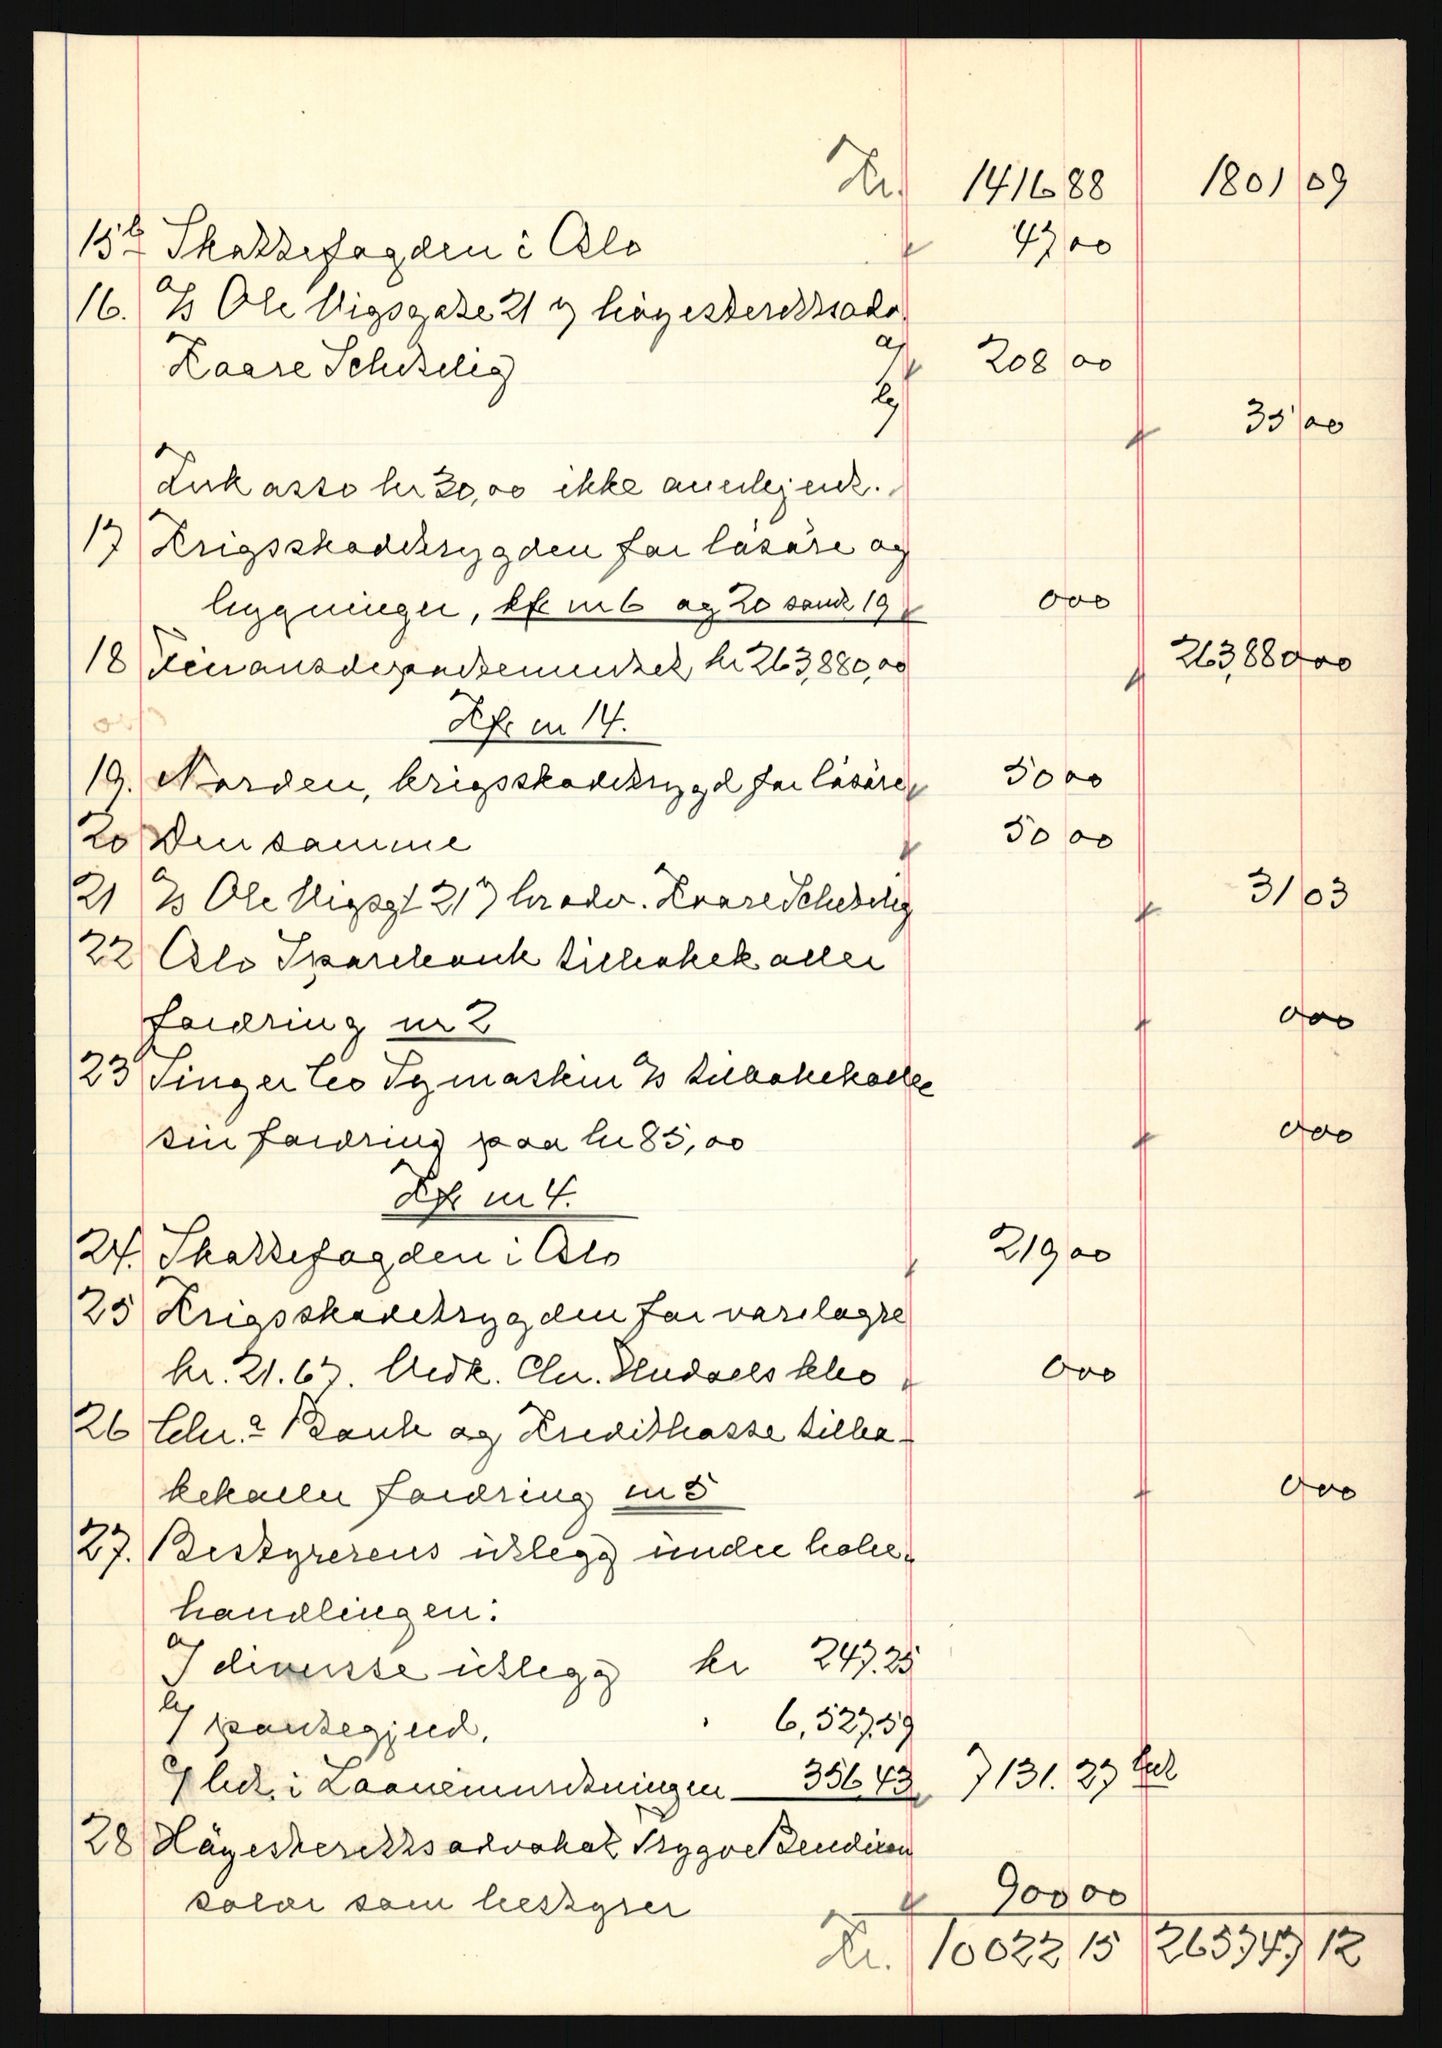 Kr. 1416 88 1801 09
15b Skattefogden i Oslo 47 00
16. A/S Ole Vigsgate 21 v/ høyesterettsadv.
Kaare Schetelig a/ 208 00
b/ 35 00
Inkasso kr 30,00 ikke anerkjent.
17 Krigsskadetrygden for løsøre og
bygninger, kfr nr 6 og 20 samt 19 0 00
18 Finansdepartementet kr 263,880,00 263,880 00
Kfr nr 14.
19. Norden, krigsskadetrygd for løsøre 50 00
20 Den samme 50 00
21 A/S Ole Vigsgt 21 v/ hradv. Kaare Schetelig 31 03
22 Oslo Sparebank tilbakekaller
fordring nr 2 0 00
23 Singer Co Symaskin A/S tilbakekaller
sin fordring paa kr 85,00 0 00
Kfr nr 4.
24. Skattefogden i Oslo 219 00
25 Krigsskadetrygden for varelagre
kr. 21.67. Vedk. Chr. & Co 0 00
26 Chr.a Bank og Kreditkasse tilba-
kekaller fordring nr 5 0 00
27. Bestyrerens utlegg under bobe-
handlingen:
a/ diverse utlegg kr 247.25
b/ pantegjeld. " 6,527,59
c/ bet. i Laaneinnretningen 356,43 7131.27 bet
28 Høyesterettsadvokat Trygve Bendixen
salær som bestyrer 900 00
Kr. 10022 15 265747 12